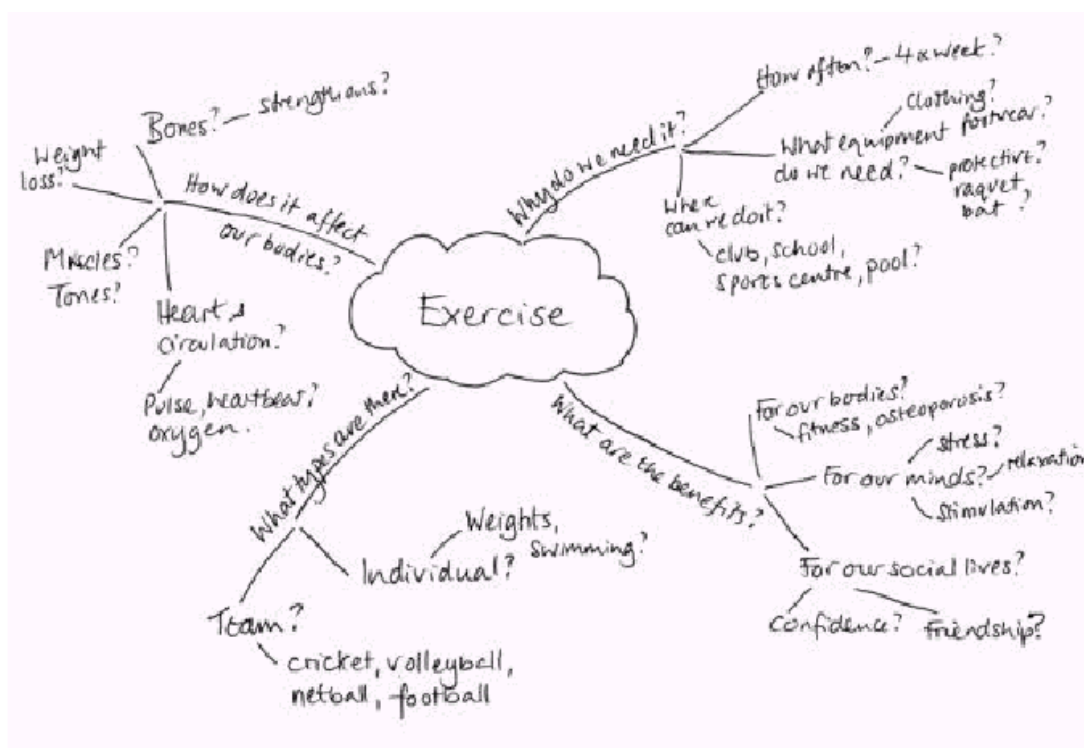 Exercise
How does it affect
our bodies?
Bones?
strengthens?
Weight
loss?
Muscles?
Tones?
Heart &
circulation?
Pulse, heartbeat?
oxygen.
Why do we need it?
How often? - 4 x week?
What equipment
do we need?
Clothing?
footwear?
protective?
raquet,
bat ?
Where
can we do it?
club, school,
sports centre, pool?
What types are there?
Individual?
Weights,
swimming?
Team?
cricket, volleyball,
netball, football
What are the benefits?
For our bodies?
fitness, osteoporosis?
For our minds?
stress?
relaxation
Stimulation?
For our social lives?
Confidence?
Friendship?